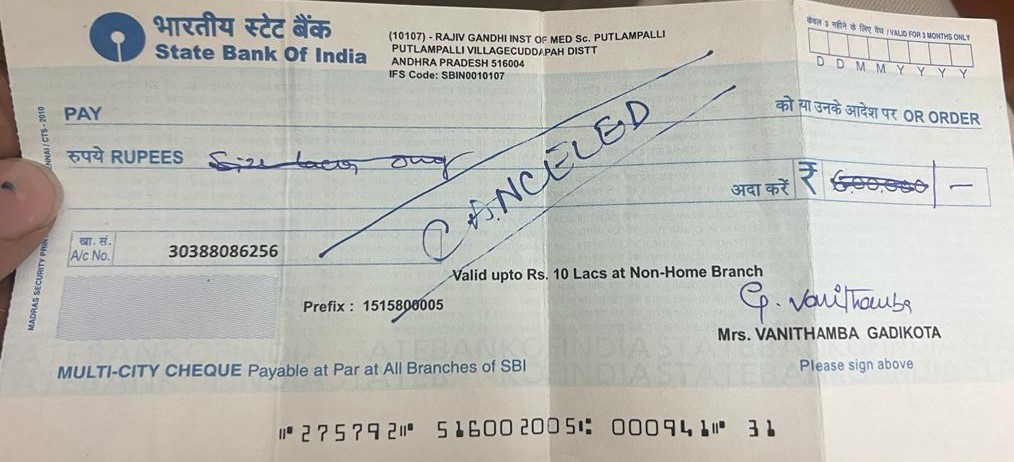 भारतीय स्टेट बैंक
State Bank Of India
(10107) - RAJIV GANDHI INST OF MED Sc. PUTLAMPALLI
PUTLAMPALLI VILLAGECUDDAPAH DISTT
ANDHRA PRADESH 516004
IFS Code: SBIN0010107
केवल 3 महीने के लिए वैध / VALID FOR 3 MONTHS ONLY
D D M M Y Y Y Y
PAY
को या उनके आदेश पर OR ORDER
रुपये RUPEES
CANCELED
अदा करें ₹ 600,000 -
खा. सं.
A/c No. 30388086256
Valid upto Rs. 10 Lacs at Non-Home Branch
Prefix : 1515800005
G. Vanithamba
Mrs. VANITHAMBA GADIKOTA
Please sign above
MULTI-CITY CHEQUE Payable at Par at All Branches of SBI
⑈275792⑈ 516002005⑆ 000941⑈ 31